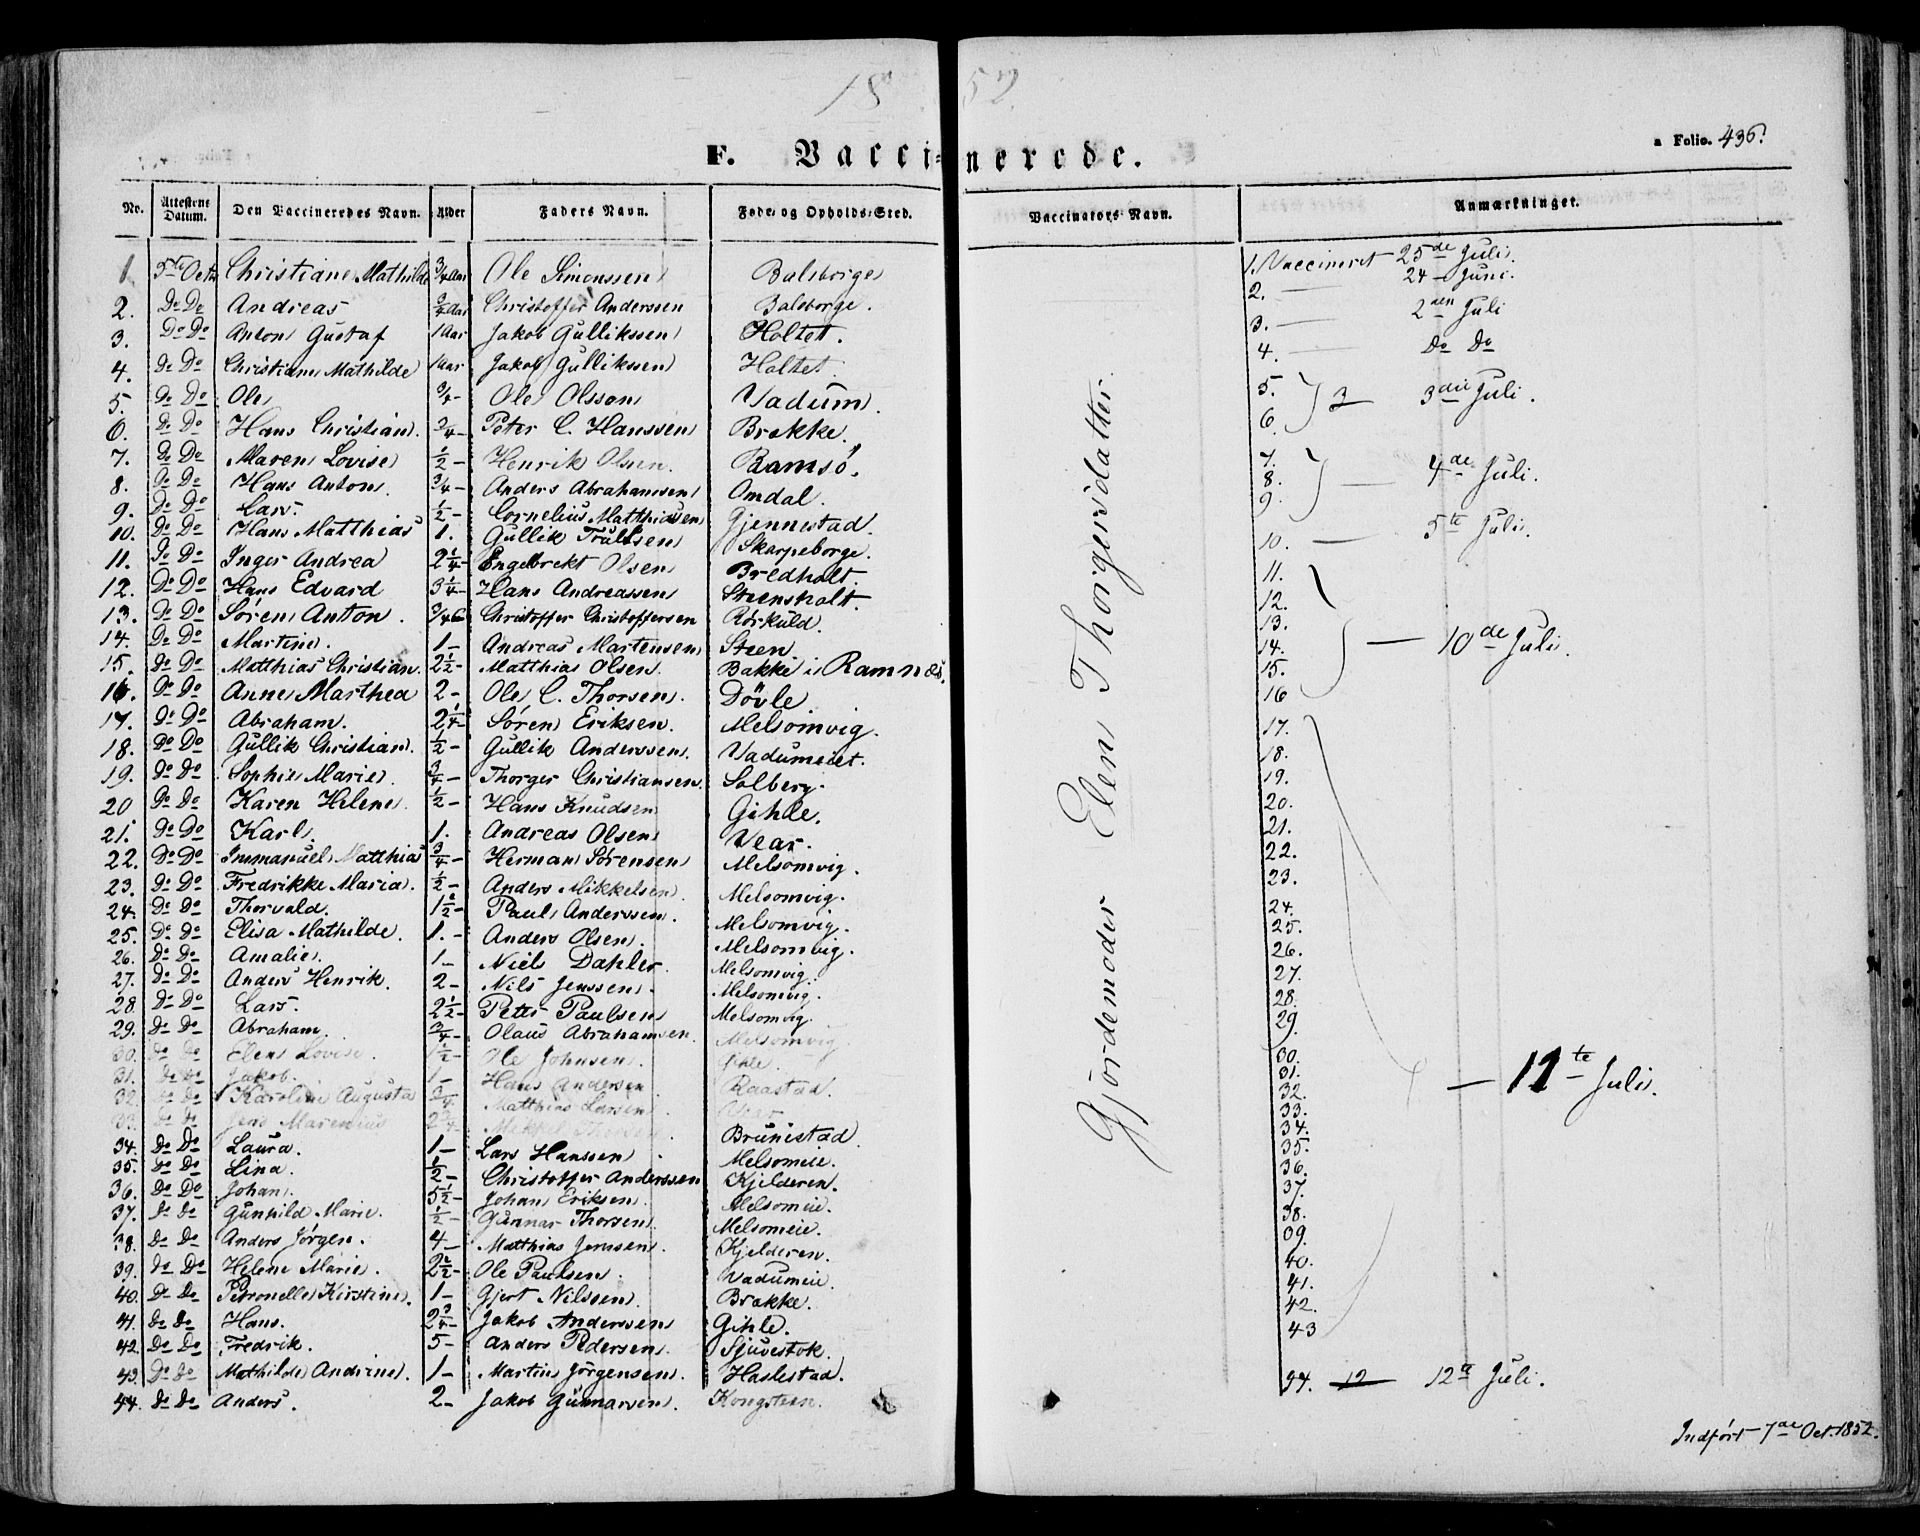 1852.
F. Vaccinerede.
a Folio. 436.
No. Attestens Datum. Den Vaccineredes Navn. Alder Faders Navn. Føde- og Opholds-Sted. Vaccinators Navn. Anmærkninger.
1 5te Octr Christiane Mathilde 3/4 Aar Ole Simonssen Balsborge 1. Vaccineret 25de Juli.
2. Do Do Andreas 3/4 Aar Christoffer Anderssen Balsborge. 2. — 24 - Juni.
3. Do Do Anton Gustaf 1 Aar Jakob Gullikssen Holtet. 3. — 2den Juli
4. Do Do Christiane Mathilde 1 Aar Jakob Gullikssen Holtet. 4. — Do Do
5. Do Do Ole 3/4 - Ole Olsson Vadum. 5.
6. Do Do Hans Christian. 3/4 - Peter C. Hanssen Brekke. 6. 3die Juli.
7. Do Do Maren Lovise 1/2 - Henrik Olsen. Ramsö. 7.
8. Do Do Hans Anton. 3/4 - Anders Abrahamsen Omdal. 8. — 4de Juli.
9. Do Do Lars. 1/2 - Cornelius Matthiasen Gjennestad. 9.
10. Do Do Hans Matthias 1. Gullik Trulsen Skarpeborge. 10. — 5te Juli.
11. Do Do Inger Andrea 2 1/4 - Engebrekt Olsen Bredholt. 11.
12. Do Do Hans Edvard 3 1/4 - Hans Andreassen Steensholt. 12.
13. Do Do Sören Anton. 3/4 Christoffer Christoffersen Rörkuld. 13.
14. Do Do Martine. 1 - Andreas Martensen Steen 14. — 10de Juli.
15. Do Do Matthias Christian. 2 1/2 - Matthias Olsen. Bakke i Ramnes. 15.
16. Do Do Anne Marthea 2 - Ole C. Thorsen. Dövle. 16
17. Do Do Abraham. 2 1/4 - Sören Eriksen. Melsomvig. 17.
18. Do Do Gullik Christian. 1/2 - Gullik Anderssen. Vadumeiet. 18.
19. Do Do Sophie Marie. 3/4 - Thorger Christiansen. Solberg. 19.
20 Do Do Karen Helene. 1/2 - Hans Knudsen Gihle. 20.
21. Do Do Karl. 1. Andreas Olsen Vear. 21.
22. Do Do Immanuel Matthias 3/4 - Herman Sörensen Melsomvig. 22.
23. Do Do Fredrikke Maria. 1/2 - Anders Mikkelsen. Melsomvig. 23.
24. Do Do Thorvald. 1 1/2 - Paul Anderssen. Melsomvig. 24.
25. Do Do Elisa Mathilde. 1. - Anders Olsen. Melsomvig. 25.
26. Do Do Amalie. 1 - Niels Dahler. Melsomvig. 26.
27. Do Do Anders Henrik. 2 - Nils Jenssen. Melsomvig. 27.
28. Do Do Lars. 2 1/2 - Petter Paulsen Melsomvig. 28.
29. Do Do Abraham. 3/4 - Olaus Abrahamsen. Melsomvig 29.
30. Do Do Elen Lovise. 1 1/2 - Ole Johnsen. Gihle. 30.
31. Do Do Jakob. 1 - Hans Andersen Raastad. 31.
32. Do Do Karoline Augusta 3/4 Matthias Larsen. Vear 32. — 11te Juli.
33. Do Do Jens Marenius 2 3/4 33.
34. Do Do Laura. 1 - Lars Hanssen. Brunestad. 34.
35. Do Do Lina. 1/2 - Christoffer Anderssen Melsomeie. 35.
36. Do Do Johan. 5 1/2 - Johan Eriksen. Kjelderen. 36.
37. Do Do Gunhild Marie. 1/2 - Gunnar Thorsen. Melsomeie. 37.
38. Do Do Anders Jörgen. 4 - Matthias Jenssen. Melsomeie. 38.
39. Do Do Helene Marie. 2 1/2 - Ole Paulsen. Kjelderen. 39.
40. Do Do Petronelle Kirstine. 1 - Gjert Nilssen. Vadumeie. 40.
41. Do Do Hans. 2 3/4 - Jakob Anderssen Brekke. 41.
42. Do Do Fredrik. 5 - Anders Pedersen. Gihle. 42.
43. Do Do Mathilde Andrine. 1 - Martin Jörgensen. Sjuestok. 43
Haslestad.
44. Do Do Anders. 2 - Jakob Gunnarsen. Kongsteen. 44. 12 12te Juli.
Gjordemoder Elen Thorgersdatter.
Indført 7de Oct. 1852.